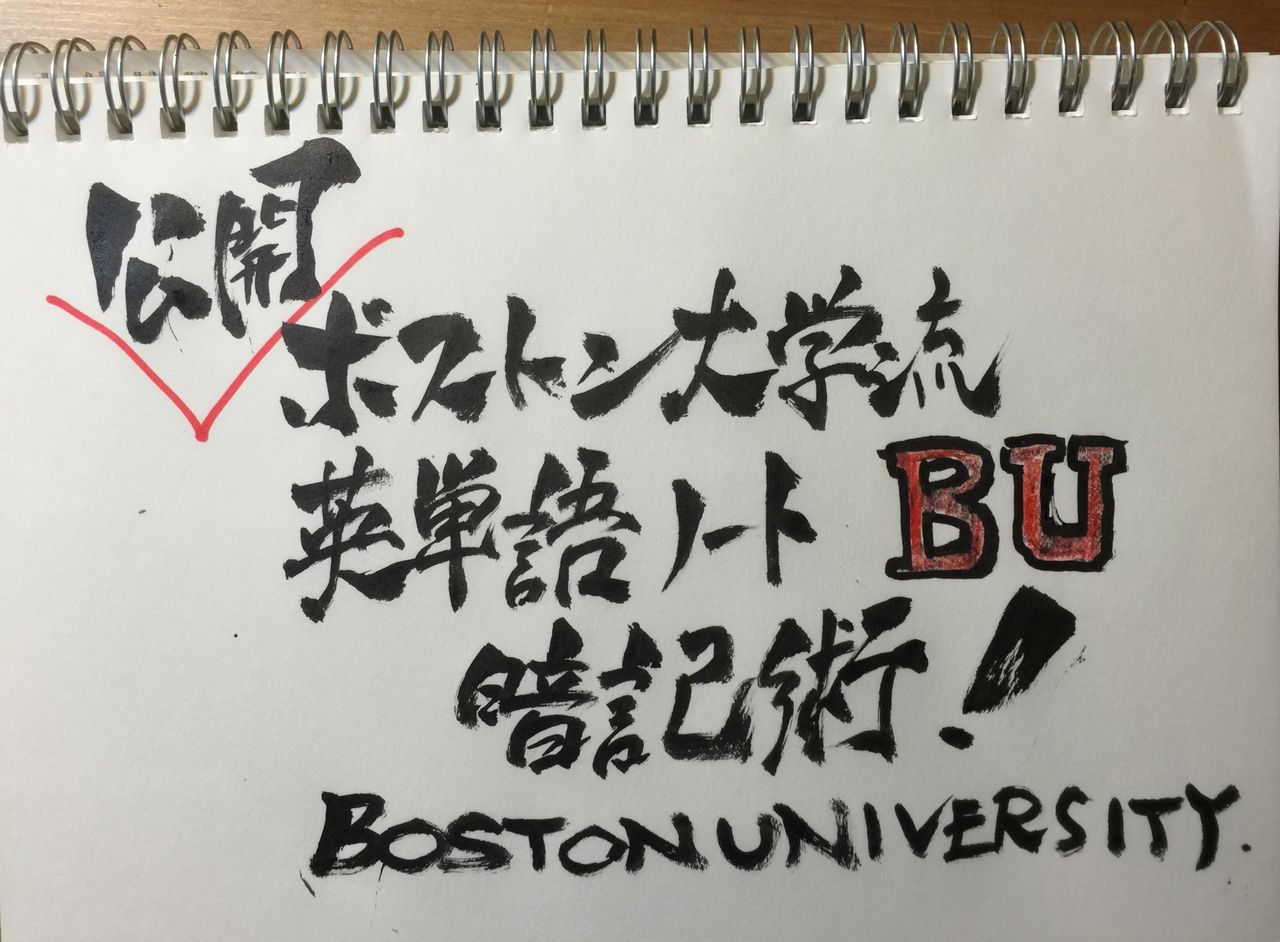 公開
ボストン大学流
英単語ノート BU
暗記術!
BOSTON UNIVERSITY.